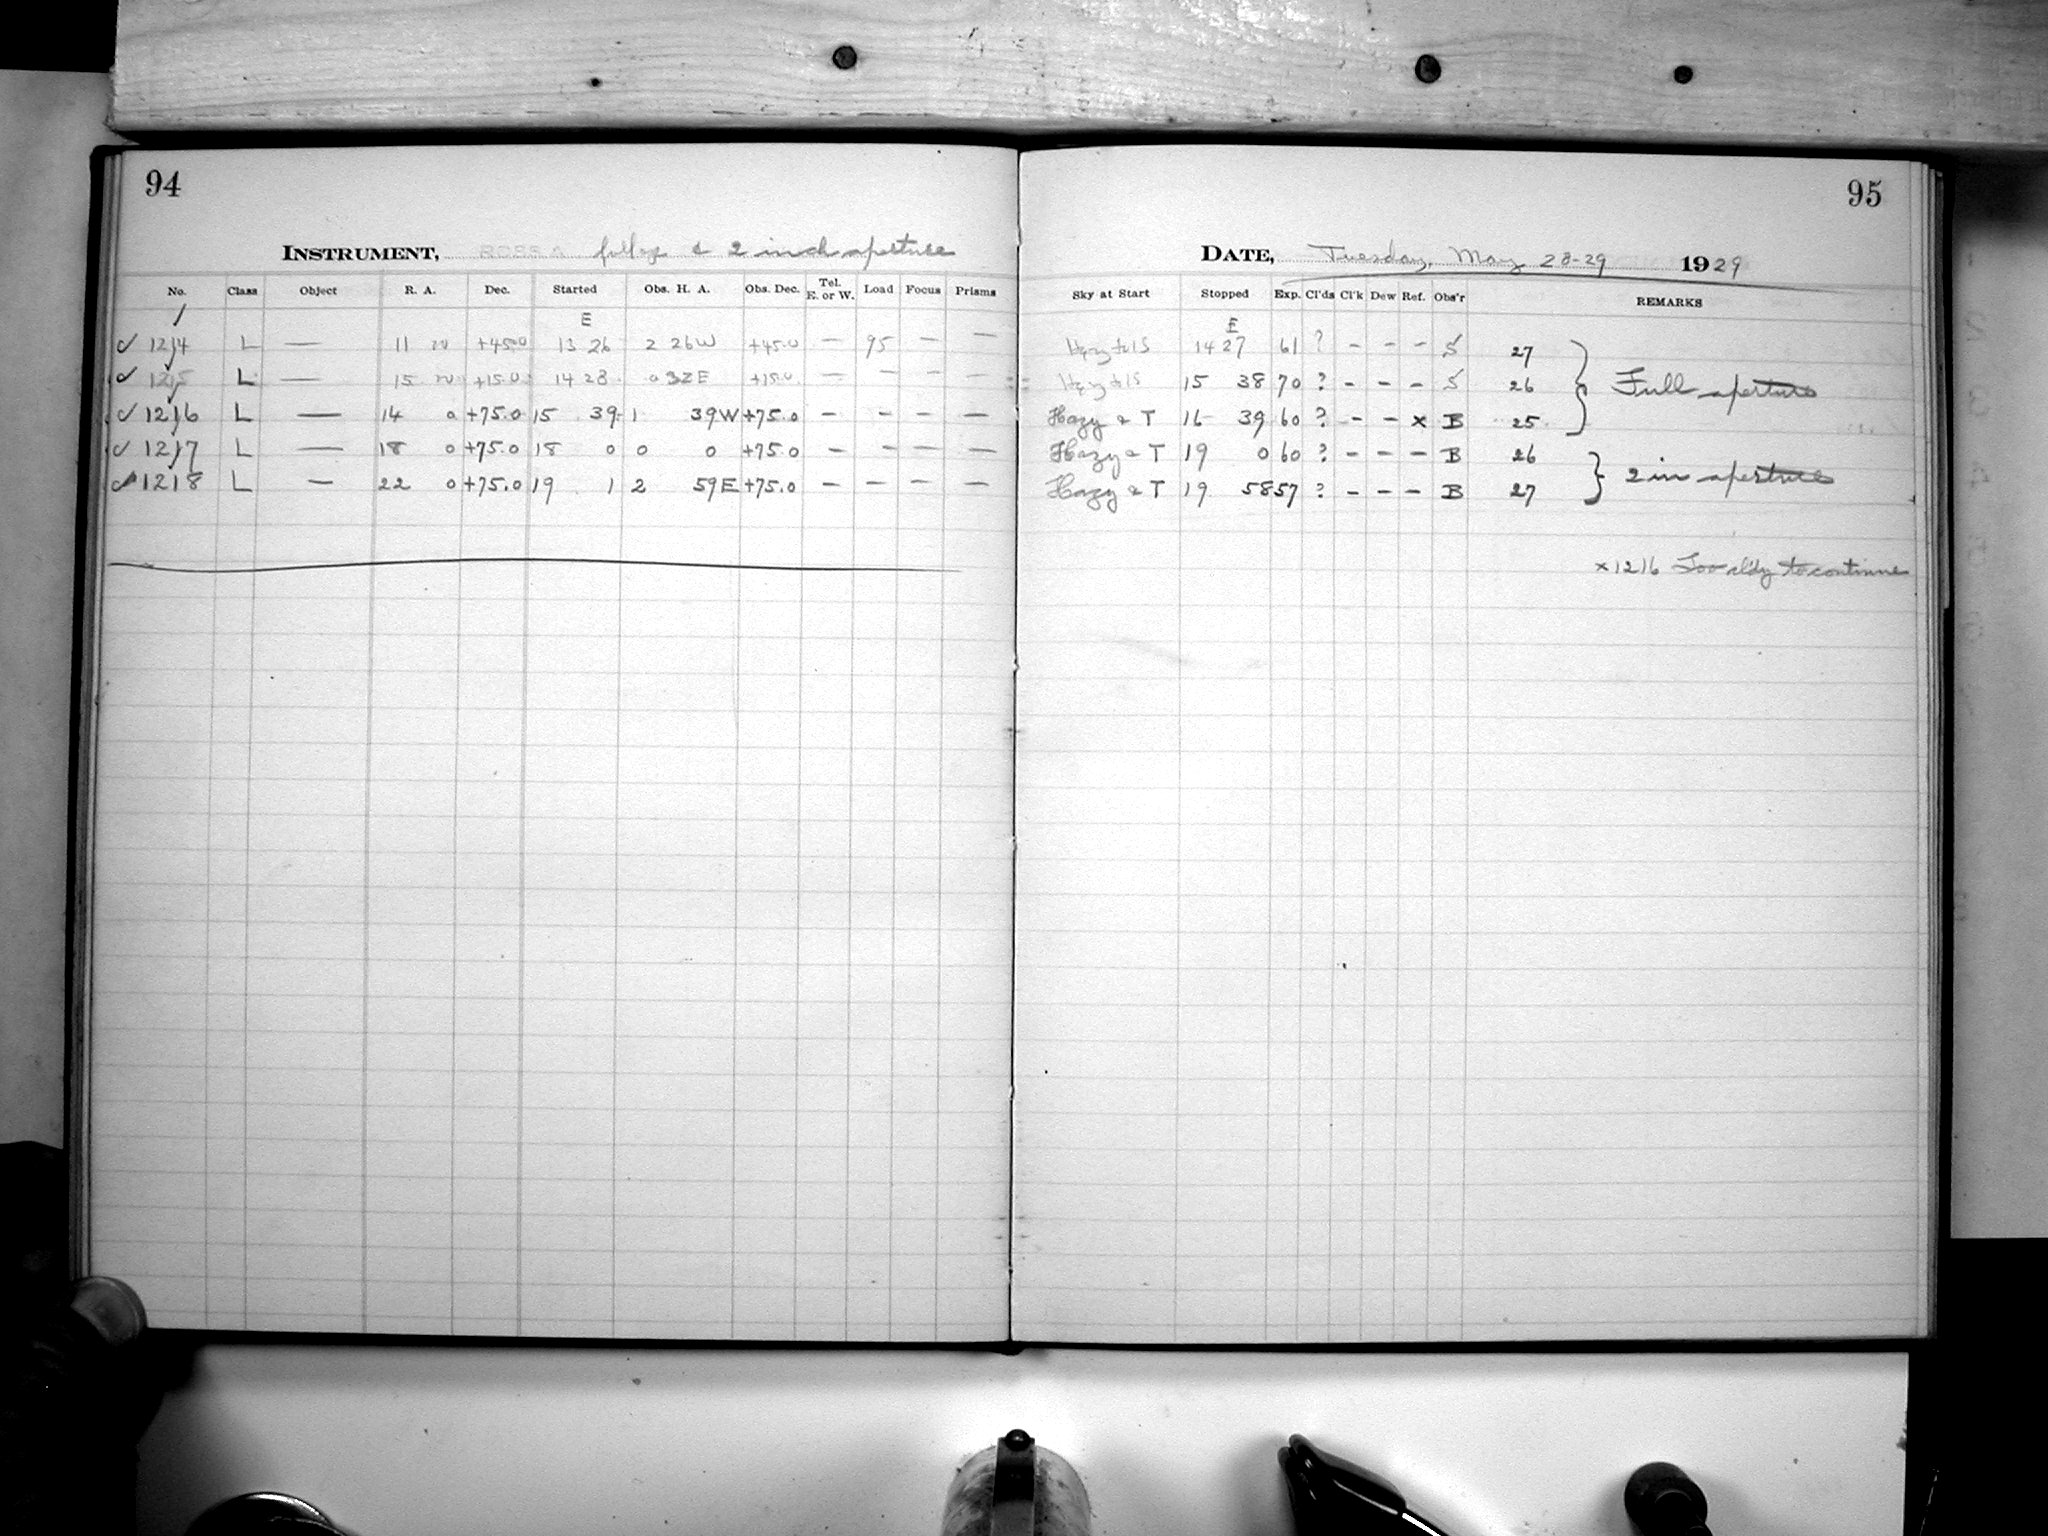 94
INSTRUMENT, ROSS A full ap & 2 inch aperture
No. Class Object R. A. Dec. Started Obs. H. A. Obs. Dec. Tel. E. or W. Load Focus Prisms
E
✓ 1214 L — 11 +45.0 13 26 2 26W +45.0 — 95 — —
✓ 1215 L — 15 +15.0 14 28 0 32E +15.0 — — — —
✓ 1216 L — 14 0 +75.0 15 39 1 39W +75.0 — — — —
✓ 1217 L — 18 0 +75.0 18 0 0 0 +75.0 — — — —
✓ 1218 L — 22 0 +75.0 19 1 2 59E +75.0 — — — —
95
DATE, Tuesday, May 28-29 1929
Sky at Start Stopped Exp. Cl'ds Cl'k Dew Ref. Obs'r REMARKS
E
Hazy 14 27 61 ? - - - S 27
Hazy 15 38 70 ? - - - S 26 } Full aperture
Hazy & T 16 39 60 ? - - x B 25
Hazy & T 19 0 60 ? - - - B 26
} 2 in aperture
Hazy & T 19 58 57 ? - - - B 27
x 1216 Too cldy to continue